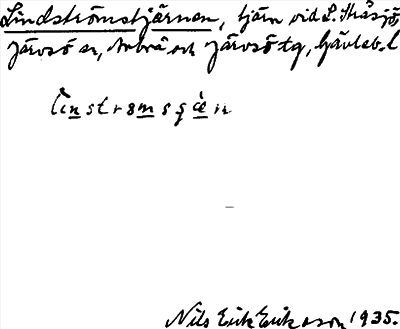 Lindströmstjärnen, tjärn vid L. Stråsjö,
Järvsö sn, Arbrå och Järvsö tg, Gävleb. l
Nils Erik Eriksson 1935.